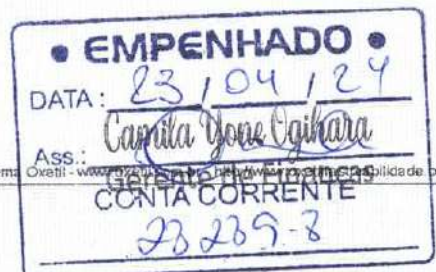 • EMPENHADO •
DATA: 23 / 04 / 24
Camila Yone Ogihara
Ass.:
Gerente de Finanças
CONTA CORRENTE
23239-8